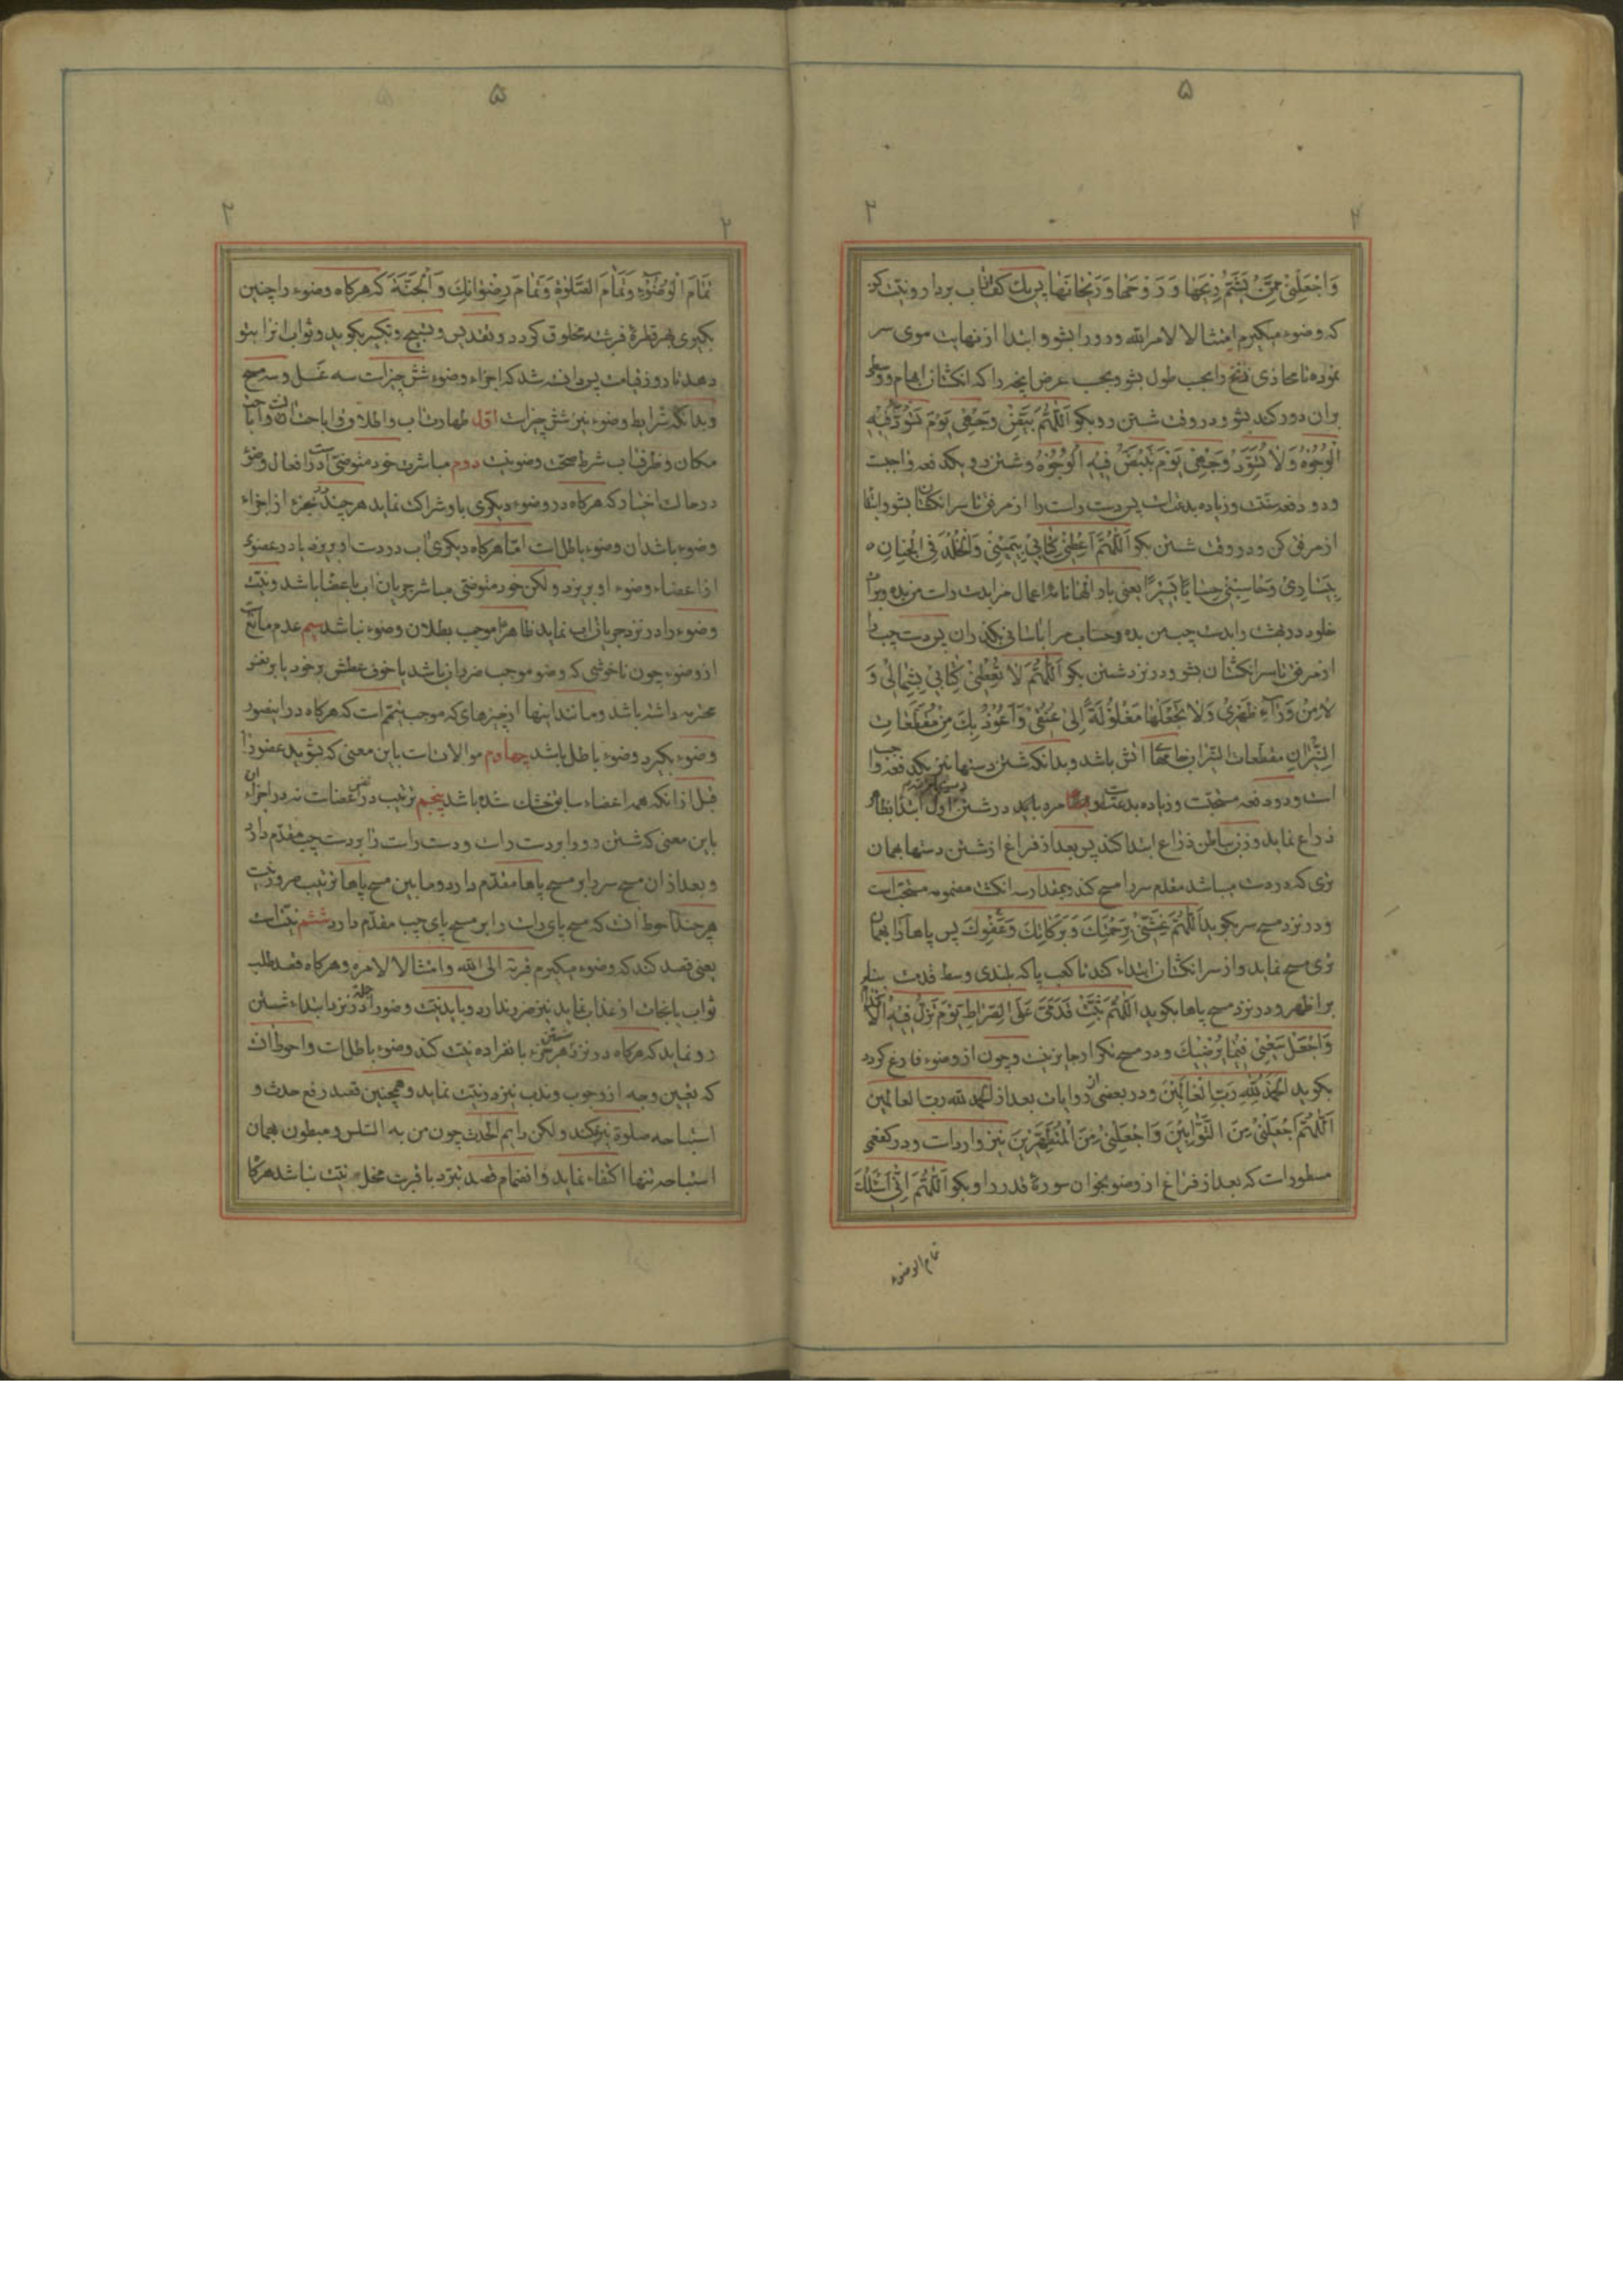 ۵
۲
۲
وَاجْعَلْنِی مِمَّنْ یَشَمُّ رِیحَهَا وَ رَوْحَهَا وَ رَیْحَانَهَا پس یک کف اب بردار و نیت کن
که وضوء میکیرم امتثالا لامر الله و رو را بشو و ابتدا از نهایت موی سر
نموده تا محاذی ذقن را بحسب طول بشو و بحسب عرض انچه را که انکشتان ابهام و وسطی
بران دور کند بشو و در وقت شستن رو بکو اَللّهُمَّ بَیِّضْ وَجْهِی یَوْمَ تَسْوَدُّ فِیهِ
الْوُجُوهُ وَلا تُسَوِّدْ وَجْهِی یَوْمَ تَبْیَضُّ فِیهِ الْوُجُوهُ و شستن رو یکدفعه واجبست
و دو دفعه سنتست و زیاده بدعتست پس دست راست را از مرفق تا سر انکشتان بشو و ابتدا
از مرفق کن و در وقت شستن بکو اَللّهُمَّ اَعْطِنِی کِتَابِی بِیَمِینِی وَالْخُلْدَ فِی الْجِنَانِ
بِیَسَارِی وَحَاسِبْنِی حِسَابًا یَسِیرًا یعنی بار الها نامه اعمال مرا بدست راست من بده و برات
خلود در بهشت را بدست چپ من بده و حساب مرا باسانی بکذران پس دست چپ را
از مرفق تا سر انکشتان بشو و در نزد شستن بکو اَللّهُمَّ لا تُعْطِنِی کِتَابِی بِشِمَالِی وَ
لا مِنْ وَرَآءِ ظَهْرِی وَلا تَجْعَلْهَا مَغْلُولَةً اِلیٰ عُنُقِی وَاَعُوذُ بِکَ مِنْ مُقَطَّعَاتِ
النِّیرَانِ مقطعات النیران جامهای اتش باشد و بدانکه شستن دستها نیز یکدفعه واجب
است و دو دفعه مستحبست و زیاده بدعتست و مرد باید در شستن اول ابتدا بظاهر
ذراع نماید و زن بباطن ذراع ابتدا کند پس بعد از فراغ از شستن دستها بهمان
تری که در دست میباشد مقدم سر را مسح کند و بمقدار سه انکشت مضمومه مستحب است
و در نزد مسح سر بکوید اَللّهُمَّ غَشِّنِی رَحْمَتَکَ وَ بَرَکَاتِکَ وَعَفْوِکَ پس پاها را بهمان
تری مسح نماید و از سر انکشتان ابتداء کند تا کعب پا که بلندی وسط قدمست بنابر
بر اظهر و در نزد مسح پاها بکوید اَللّهُمَّ ثَبِّتْ قَدَمَیَّ عَلَی الصِّرَاطِ یَوْمَ تَزِلُّ فِیهِ الْاَقْدَامُ
وَاجْعَلْ سَعْیِی فِیمَا یُرْضِیکَ و در مسح تکرار جایز نیست و چون از وضوء فارغ کردد
بکوید اَلْحَمْدُ لِلّهِ رَبِّ الْعَالَمِینَ و در بعضی از روایات بعد از الحمد لله رب العالمین
اَللّهُمَّ اجْعَلْنِی مِنَ التَّوَّابِینَ وَاجْعَلْنِی مِنَ الْمُتَطَهِّرِینَ نیز وارد است و در کفعمی
مسطور است که بعد از فراغ از وضو بخوان سورهٔ قدر را و بکو اَللّهُمَّ اِنِّی اَسْئَلُکَ
تمام الوضوء
۵
۲
۲
تَمَامَ الْوُضُوءِ وَ تَمَامَ الصَّلوٰةِ وَتَمَامَ رِضْوَانِکَ وَ الْجَنَّةَ که هرکاه وضوء را چنین
بکیری بهر قطرهٔ فرشته مخلوق کردد و تقدیس و تسبیح و تکبیر بکوید و ثواب انرا بتو
دهد تا روز قیامت پس دانسته شد که اجزاء وضوء شش چیز است سه غسل و سه مسح
و بدانکه شرایط وضوء نیز شش چیز است اول طهارت اب و اطلاق و اباحت ان و اباحت
مکان و ظرف اب شرط صحت وضو نیست دویم مباشرت خود متوضی است در افعال وضو
در حالت اختیار که هرکاه در وضوء دیکری با و شراکت نماید هرچند در جزء از اجزاء
وضوء باشد ان وضوء باطل است اما هرکاه دیکری اب در دست او بریزد یا در عضوی
از اعضاء وضوء او بریزد و لکن خود متوضی مباشر جریان اب باعضا باشد و نیت
وضوء را در نزد جریان اب نماید ظاهرا موجب بطلان وضوء نباشد سیم عدم مانع است
از وضوء چون ناخوشی که وضو موجب ضرر ان باشد یا خوف عطش بر خود یا بر نفس
محترمه داشته باشد و مانند اینها از چیزهای که موجب تیمم است که هرکاه در اینصورت
وضوء بکیرد وضوء باطل باشد چهارم موالات است باین معنی که بشوید عضو را
قبل از انکه همه اعضاء سابق خشک شده باشد پنجم ترتیب در نفس اعضا است نه در اجزاء ان
باین معنی که شستن رو را بر دست راست و دست راست را بر دست چپ مقدم دارد
و بعد از ان مسح سر را بر مسح پاها مقدم دارد و مابین مسح پاها ترتیب ضرور نیست
هرچند احوط انست که مسح پای راست را بر مسح پای چپ مقدم دارد ششم نیت است
یعنی قصد کند که وضوء میکیرم قربة الی الله و امتثالا لامره و هرکاه قصد طلب
ثواب یا نجات از عذاب نماید نیز ضرر ندارد و باید نیت وضو را در نزد ابتداء شستن
رو نماید که هرکاه در نزد شستن هر جزء بانفراده نیت کند وضوء باطل است و احوط انست
که تعیین وجه از وجوب و ندب نیز در نیت نماید و همچنین قصد رفع حدث و
استباحه صلوة نیز بکند و لکن دایم الحدث چون من به السلس و مبطون بهمان
استباحه تنها اکتفاء نماید و انضمام قصد تبرد با قربت مخل نیت نباشد هرکاه